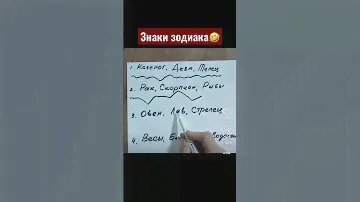 Знаки зодиака🤣
1. Козерог, Дева, Телец
2. Рак, Скорпион, Рыбы
3. Овен, Лев, Стрелец
4. Весы,